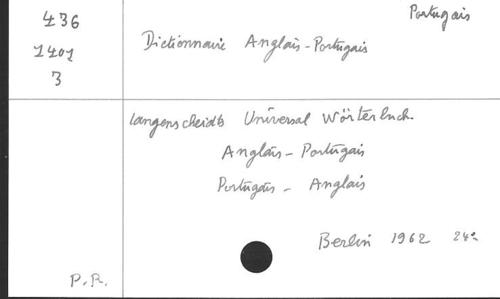 Portugais
436
1401
3
Dictionnaire Anglais-Portugais
Langenscheidts Universal Wörterbuch.
Anglais - Portugais
Portugais - Anglais
Berlin 1962 24°
P.R.